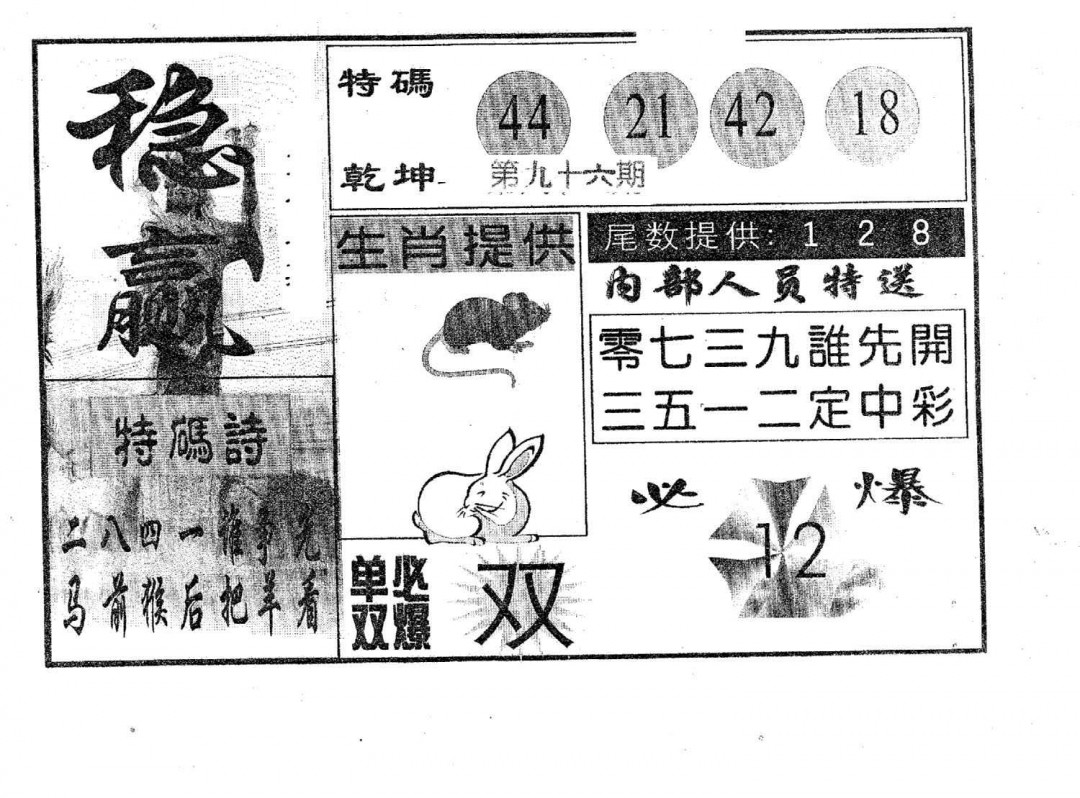 稳赢
特碼 44 21 42 18
乾坤 第九十六期
生肖提供
尾数提供: 1 2 8
内部人员特送
零七三九誰先開
三五一二定中彩
特碼詩
二八四一誰爭先
马前猴后把羊看
必爆
12
单双必爆
双